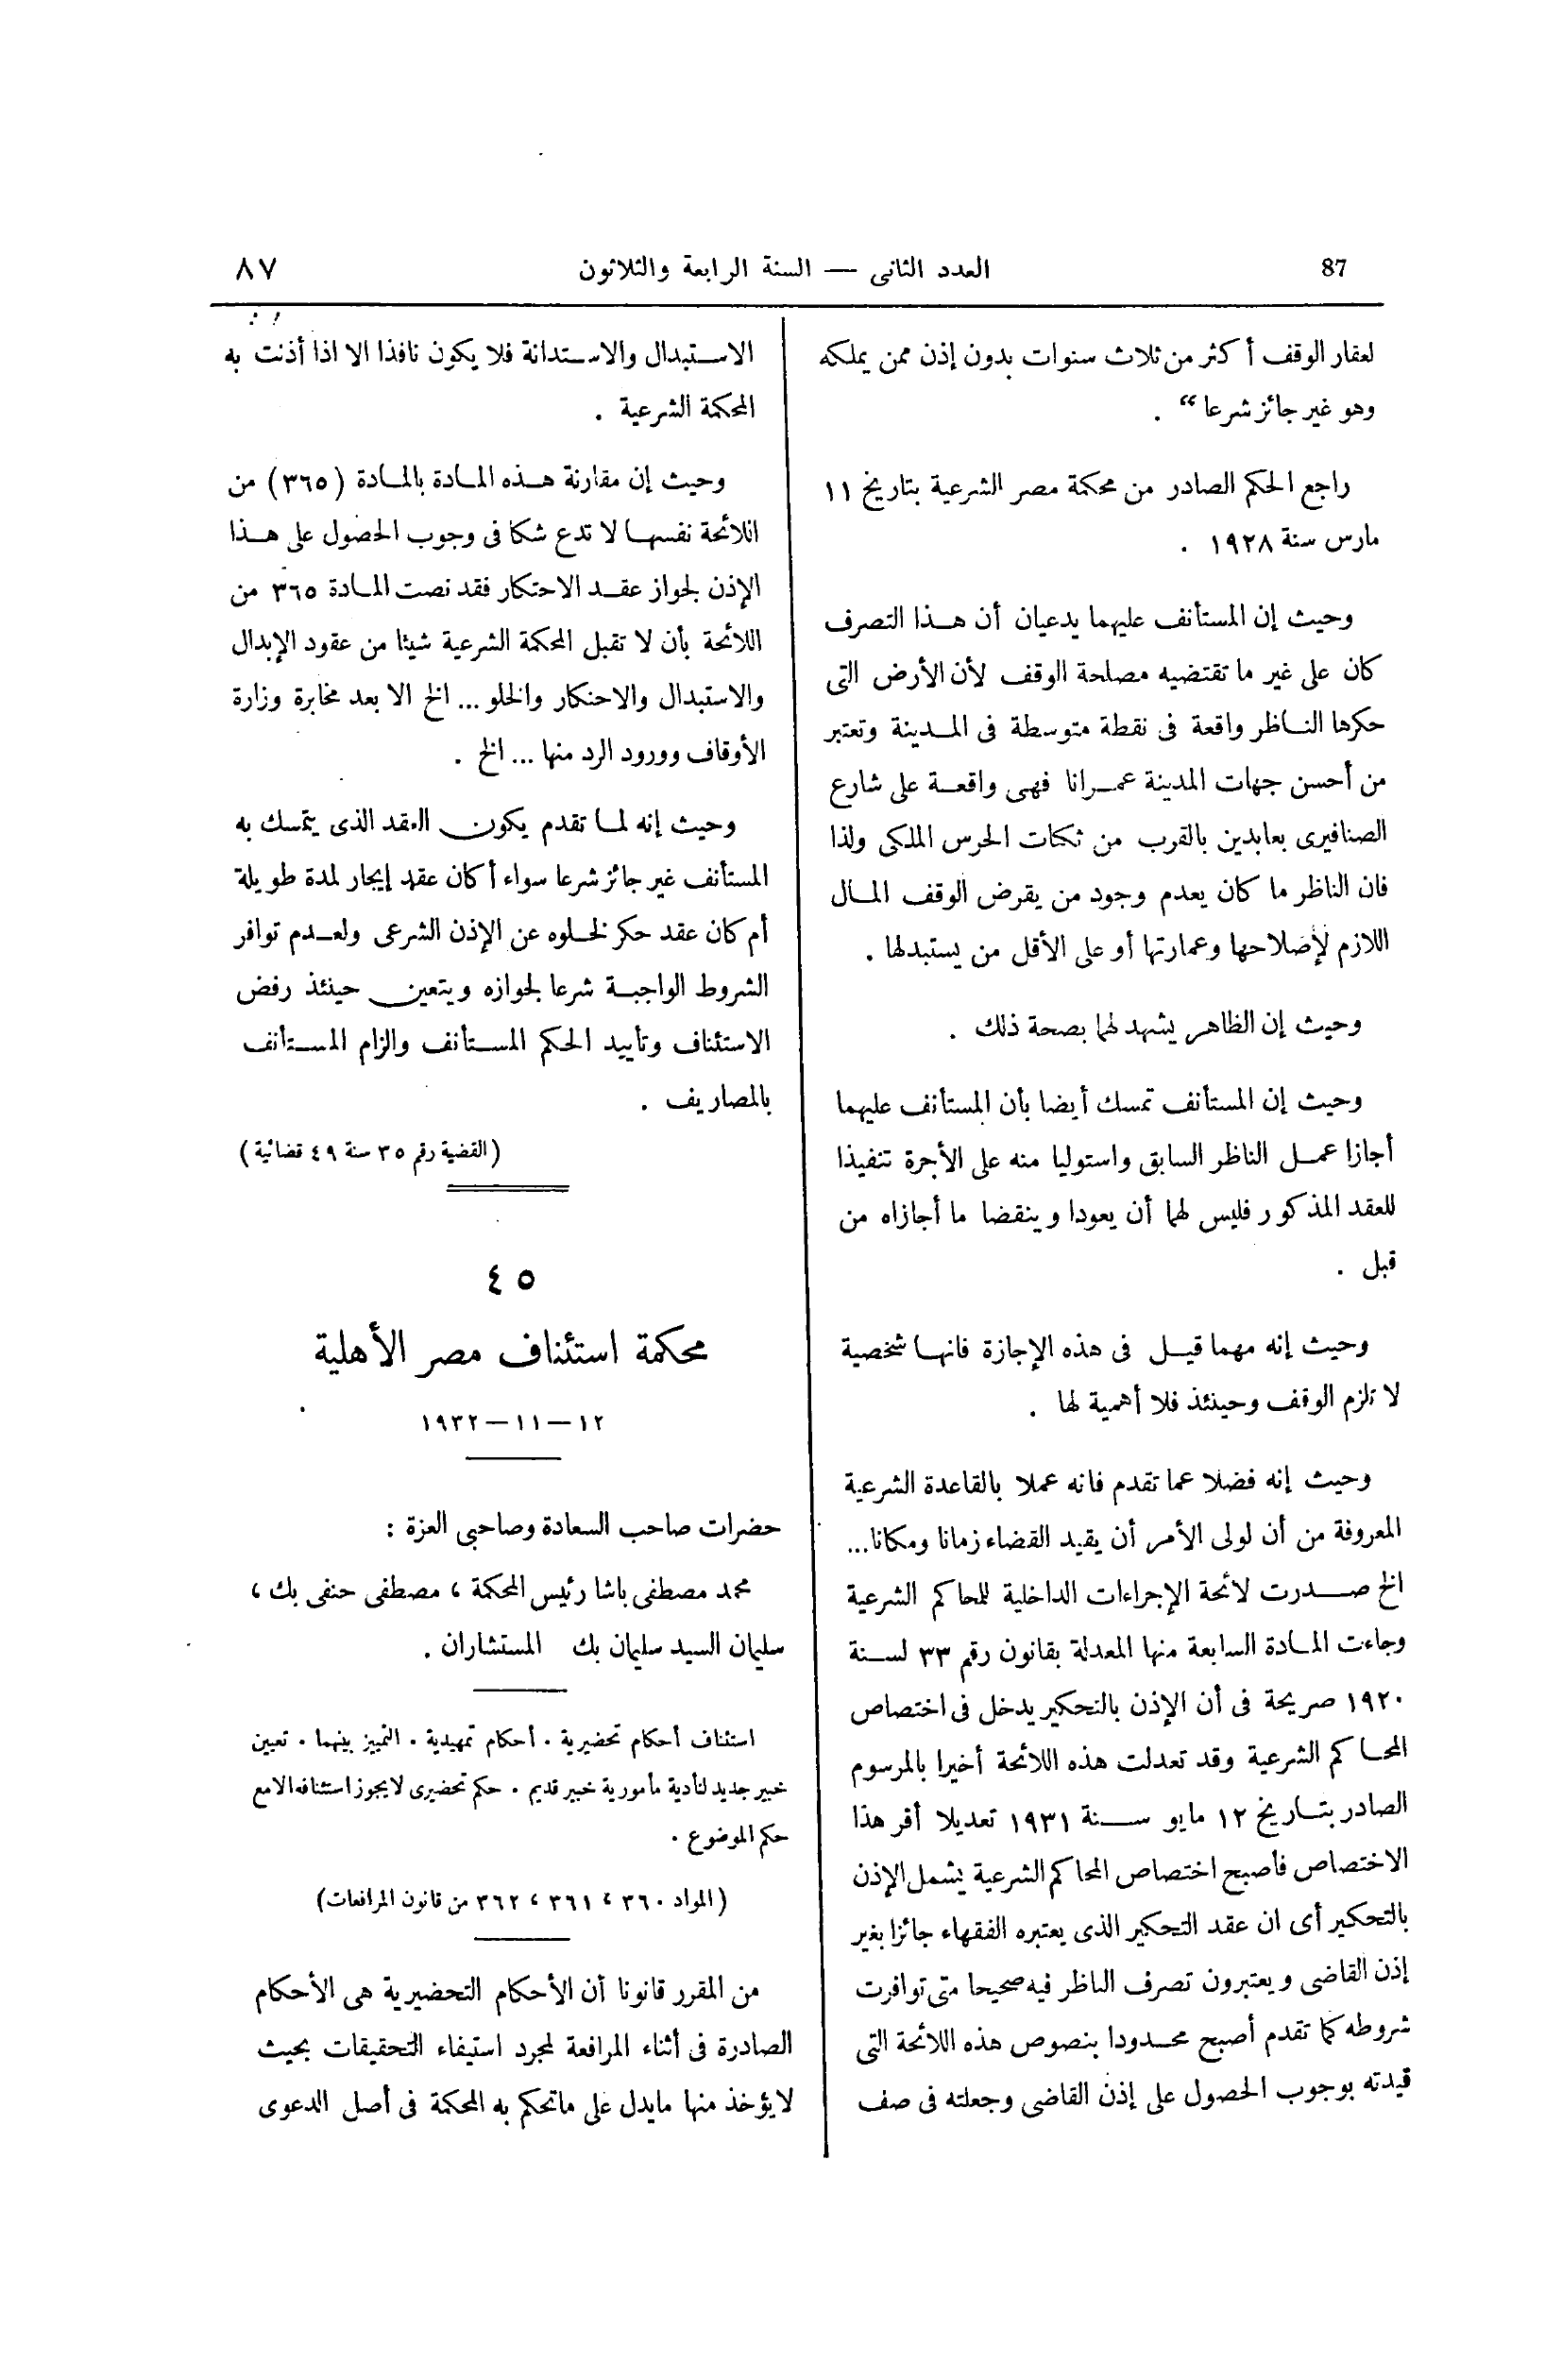 87
العدد الثانى — السنة الرابعة والثلاثون
٨٧
لعقار الوقف أكثر من ثلاث سنوات بدون إذن ممن يملكه
وهو غير جائز شرعا “ .
راجع الحكم الصادر من محكمة مصر الشرعية بتاريخ ١١
مارس سنة ١٩٢٨ .
وحيث إن المستأنف عليهما يدعيان أن هذا التصرف
كان على غير ما تقتضيه مصلحة الوقف لأن الأرض التى
حكرها الناظر واقعة فى نقطة متوسطة فى المدينة وتعتبر
من أحسن جهات المدينة عمرانا فهى واقعة على شارع
الصنافيرى بعابدين بالقرب من ثكنات الحرس الملكى ولذا
فان الناظر ما كان يعدم وجود من يقرض الوقف المال
اللازم لإصلاحها وعمارتها أو على الأقل من يستبدلها .
وحيث إن الظاهر يشهد لهما بصحة ذلك .
وحيث إن المستأنف تمسك أيضا بأن المستأنف عليهما
أجازا عمل الناظر السابق واستوليا منه على الأجرة تنفيذا
للعقد المذكور فليس لهما أن يعودا وينقضا ما أجازاه من
قبل .
وحيث إنه مهما قيل فى هذه الإجازة فانها شخصية
لا تلزم الوقف وحينئذ فلا أهمية لها .
وحيث إنه فضلا عما تقدم فانه عملا بالقاعدة الشرعية
المعروفة من أن لولى الأمر أن يقيد القضاء زمانا ومكانا...
الخ صدرت لائحة الإجراءات الداخلية للمحاكم الشرعية
وجاءت المادة السابعة منها المعدلة بقانون رقم ٣٣ لسنة
١٩٢٠ صريحة فى أن الإذن بالتحكير يدخل فى اختصاص
المحاكم الشرعية وقد تعدلت هذه اللائحة أخيرا بالمرسوم
الصادر بتاريخ ١٢ مايو سنة ١٩٣١ تعديلا أقر هذا
الاختصاص فأصبح اختصاص المحاكم الشرعية يشمل الإذن
بالتحكير أى ان عقد التحكير الذى يعتبره الفقهاء جائزا بغير
إذن القاضى ويعتبرون تصرف الناظر فيه صحيحا متى توافرت
شروطه كما تقدم أصبح محدودا بنصوص هذه اللائحة التى
قيدته بوجوب الحصول على إذن القاضى وجعلته فى صف
الاستبدال والاستدانة فلا يكون نافذا الا اذا أذنت به
المحكمة الشرعية .
وحيث إن مقارنة هذه المادة بالمادة (٣٦٥) من
اللائحة نفسها لا تدع شكا فى وجوب الحصول على هذا
الإذن لجواز عقد الاحتكار فقد نصت المادة ٣٦٥ من
اللائحة بأن لا تقبل المحكمة الشرعية شيئا من عقود الإبدال
والاستبدال والاحتكار والخلو ... الخ الا بعد مخابرة وزارة
الأوقاف وورود الرد منها ... الخ .
وحيث إنه لما تقدم يكون العقد الذى يتمسك به
المستأنف غير جائز شرعا سواء أكان عقد إيجار لمدة طويلة
أم كان عقد حكر لخلوه عن الإذن الشرعى ولعدم توافر
الشروط الواجبة شرعا لجوازه ويتعين حينئذ رفض
الاستئناف وتأييد الحكم المستأنف والزام المستأنف
بالمصاريف .
(القضية رقم ٣٥ سنة ٤٩ قضائية)
٤٥
محكمة استئناف مصر الأهلية
١٢ — ١١ — ١٩٣٢
حضرات صاحب السعادة وصاحبى العزة :
محمد مصطفى باشا رئيس المحكمة ، مصطفى حنفى بك ،
سليمان السيد سليمان بك المستشاران .
استئناف أحكام تحضيرية . أحكام تمهيدية . التمييز بينهما . تعيين
خبير جديد لتأدية مأمورية خبير قديم . حكم تحضيرى لا يجوز استئنافه الا مع
حكم الموضوع .
(المواد ٣٦٠ ، ٣٦١ ، ٣٦٢ من قانون المرافعات)
من المقرر قانونا أن الأحكام التحضيرية هى الأحكام
الصادرة فى أثناء المرافعة لمجرد استيفاء التحقيقات بحيث
لا يؤخذ منها ما يدل على ماتحكم به المحكمة فى أصل الدعوى